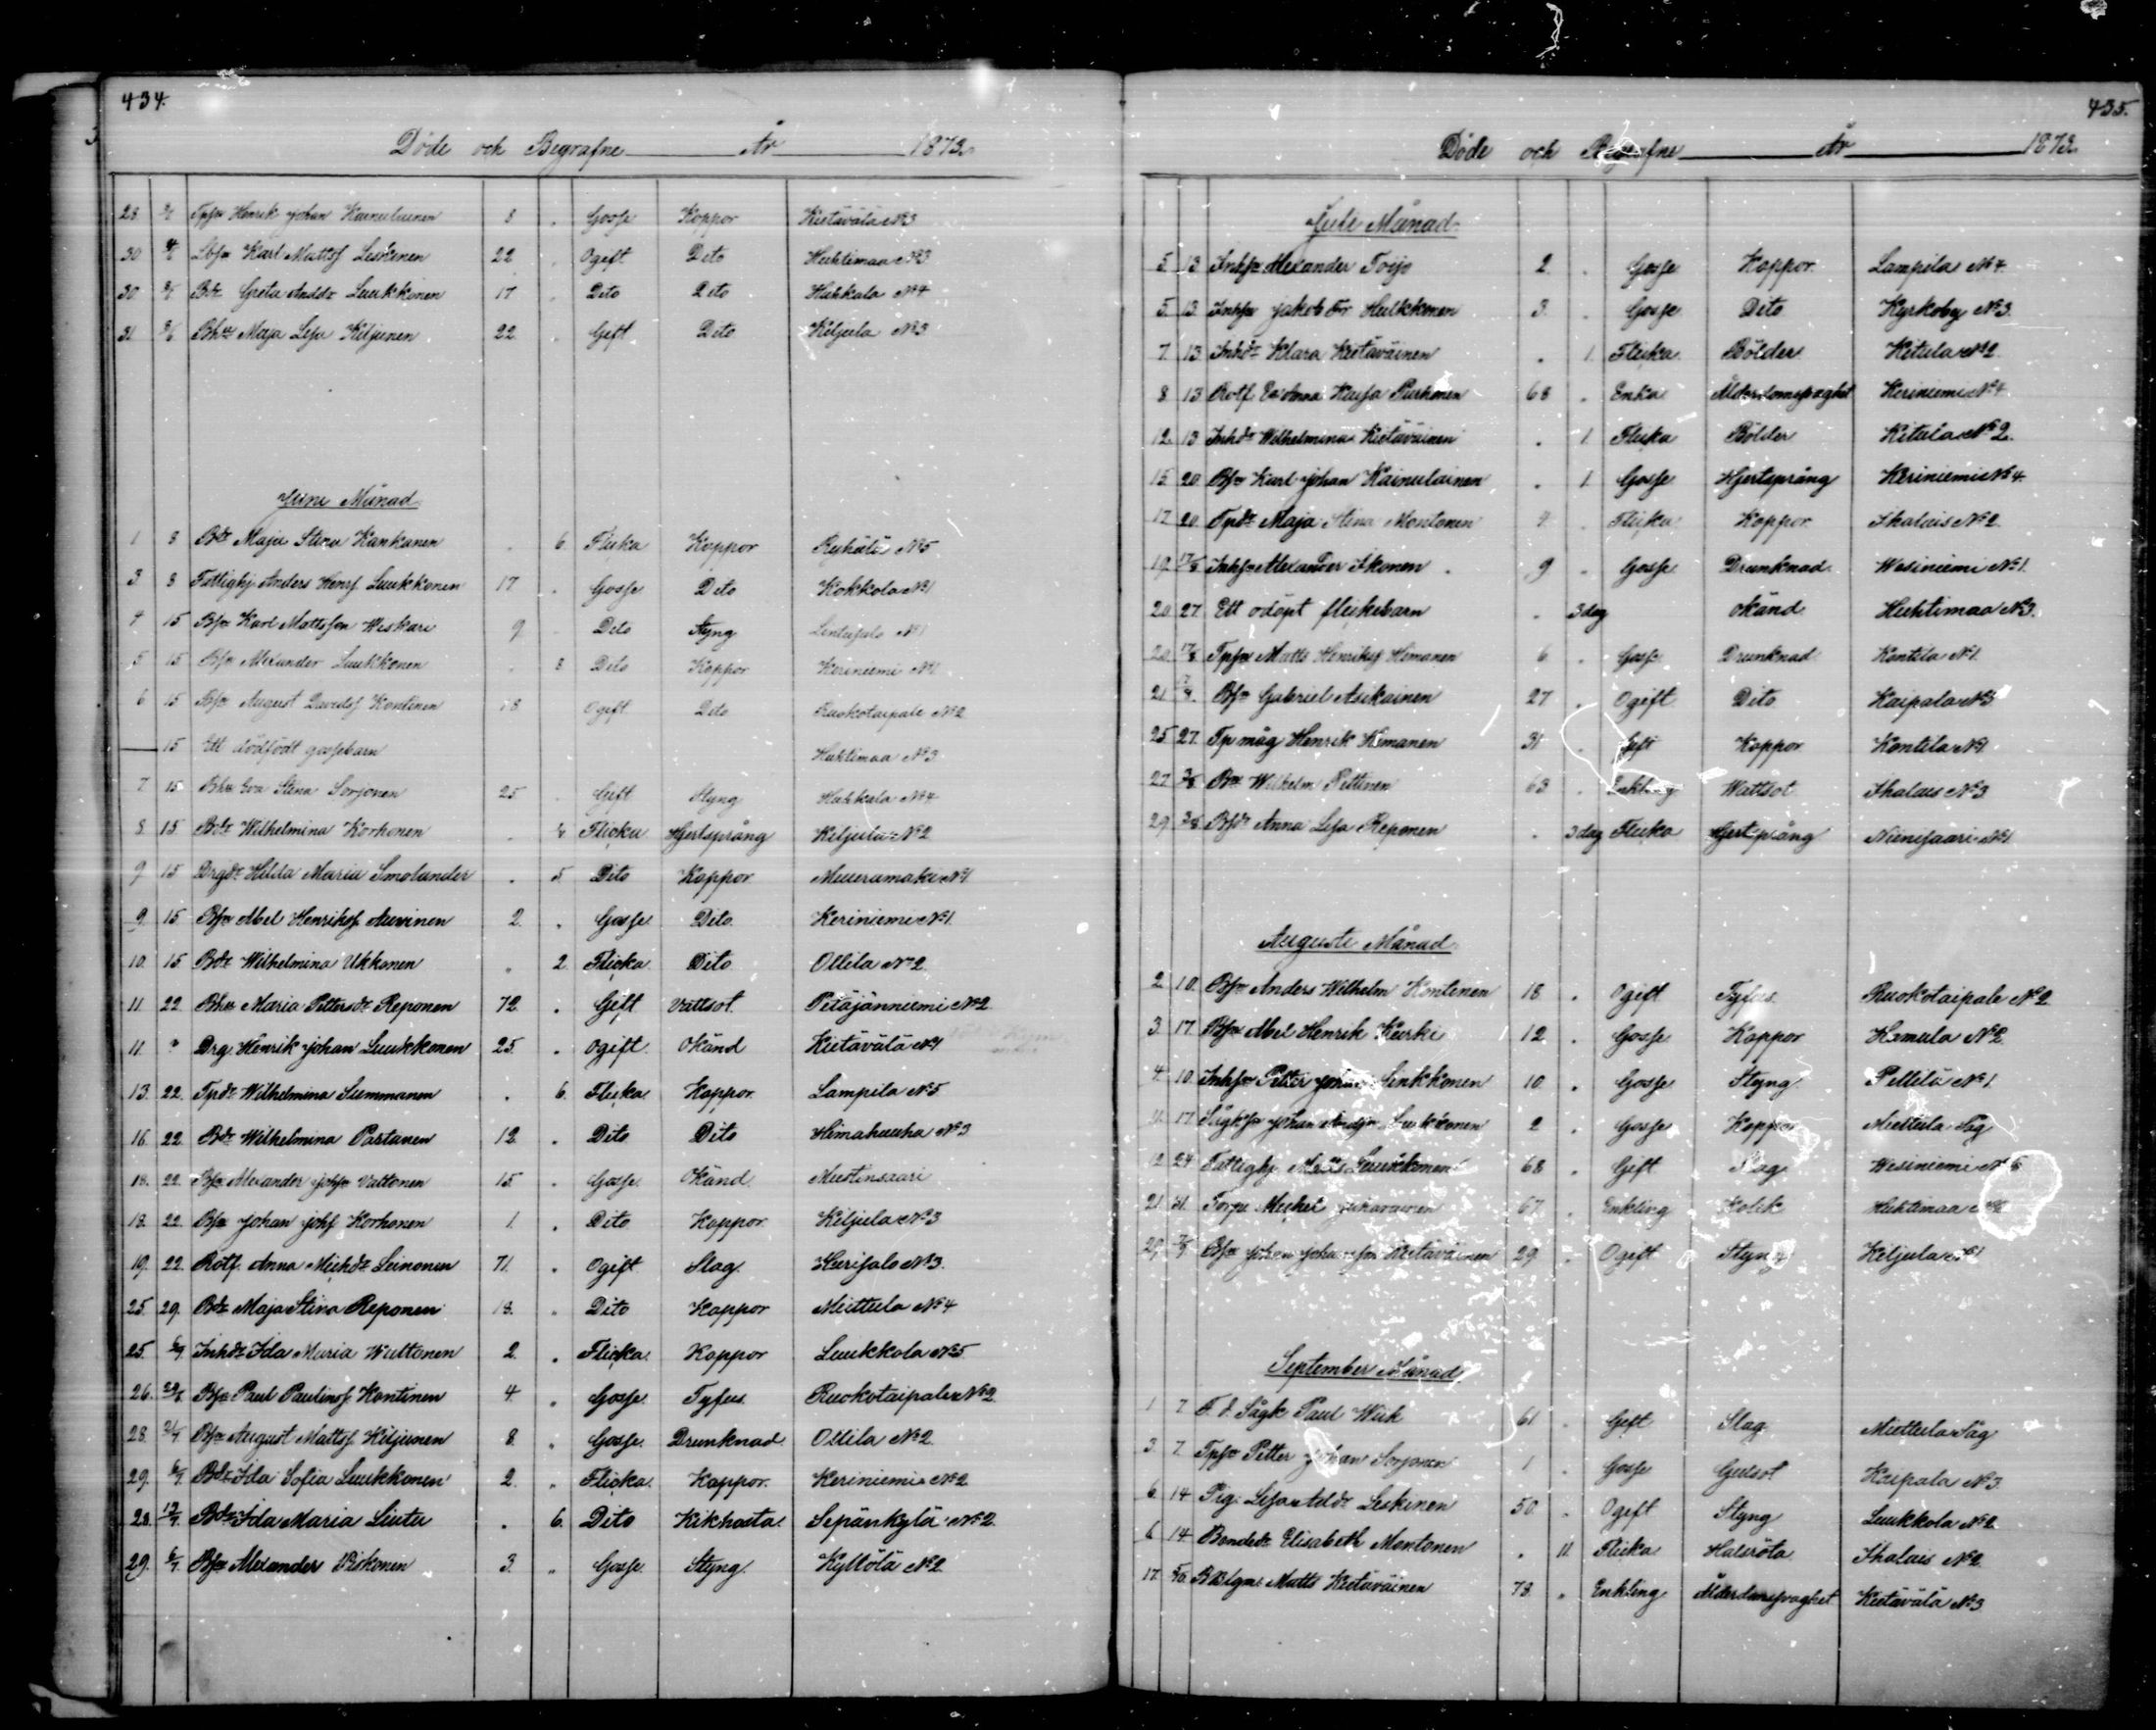 434.
Döde och Begrafne År 1873.
28. 8/6 Tpsn Henrik Johan Kainulainen 8 " Gosse Koppor Kietävälä No 3
30 8/6 Lbsn Karl Mattsf Leskinen 22 " Ogift Dito Huhtimaa No 3
30 8/6 Bdr Greta Andsdr Luukkonen 17 " Dito Dito Hahkala No 4
31 8/6 Bhu Maja Lisa Kiljunen 22 " Gift Dito Kiljula No 3
Juni Månad
1 8 Bdr Maja Stina Kankanen " 6 Flicka Koppor No 5
3 8 Fattighj Anders Henrsf Luukkonen 17 " Gosse Dito Kokkola No 1
4 15 Bsn Karl Mattsson Weskari 9 Dito Styng Lintusalo No 1
5 15 Bsn Alexander Luukkonen " 8 Dito Koppor Keriniemi No 1
6 15 Bsn August Davidsf Kontinen 18 Ogift Dito Ruokotaipale No 2
15 Ett dödfödt gossebarn Huhtimaa No 3
7 15 Bhu Eva Stina Sorjonen 25 " Gift Styng Hahkala No 4
8 15 Bdr Wilhelmina Korhonen " Flicka Hjertsprång Kiljula No 2
9 15 Drgdr Hilda Maria Smolander " 5 Dito Koppor Muuramäki No 1
9. 15. Bsn Abel Henriksf Auvinen 2. " Gosse Dito. Keriniemi No 1.
10. 15. Bdr Wilhelmina Ukkonen " 2 Flicka Dito Ollila No 2.
11. 22. Bhu Maria Pettersdr Reponen 72. " Gift Vattsot. Petäjänniemi No 2
11. " Drg. Henrik Johan Luukkonen 25. " Ogift. Okänd Kietävälä No 1
13. 22. Tpdr Wilhelmina Summanen " 6. Flicka Koppor. Lampila No 5
16. 22. Bdr Wilhelmina Partanen 12. " Dito Dito Himahuuha No 3
18. 22. Bsn Alexander Johsn Vattonen 15. " Gosse Okänd Mustinsaari
18. 22. Bsn Johan Johsf Korhonen 1. " Dito Koppor Kiljula No 3
19. 22. Rotf. Anna Michdr Leinonen 71. " Ogift Slag. Kurisalo No 3.
25. 29. Bdr Maja Stina Reponen 18. " Dito Koppor Miettula No 4
25. 6/7 Inhdr Ida Maria Wuttonen 2. " Flicka Koppor Luukkola No 5
26. 29/6 Bsn Paul Paulinsf Kontinen 4. " Gosse Tyfus Ruokotaipale No 2
28. Bsn August Mattsf Kiljunen 8. " Gosse Drunknad Ollila No 2.
29. 6/7 Bdr Ida Sofia Luukkonen 2. " Flicka Koppor. Keriniemi No 2
28. 13/7 Bdr Ida Maria Liutu " 6. Dito Kikhosta Sepänkylä No 2.
29. 6/7 Bsn Alexander Piskonen 3. " Gosse Styng. Kyllölä No 2
435.
Döde och Begrafne År 1873
Juli Månad
5 13 Inhsn Alexander Toijo 2. " Gosse Koppor Lampila No 4.
5. 13. Inhsn Jakob Fr Hulkkonen 3. " Gosse Dito Kyrkoby No 3.
7. 13 Inhdr Klara Kietäväinen " 1. Flicka Bölder Kitula No 2.
8. 13 Rotf. Ea Anna Kaisa Purhonen 68 " Enka Ålderdomsvaghet Keriniemi No 4.
12. 13 Inhdr Wilhelmina Kietäväinen " 1. Flicka Bölder Kitula No 2.
15. 20 Bsn Karl Johan Kainulainen " 1. Gosse Hjertsprång Keriniemi No 4.
17. 20. Tpdr Maja Stina Montonen " Flicka Koppor Ihalais No 2
19. 17/8 Inhsn Alexander Ikonen 9 " Gosse Drunknad. Wesiniemi No 1.
20 27. Ett odöpt flickebarn " 3 dag okänd Huhtimaa No 3.
20 17/8 Tpsn Matts Henriksf Himanen 6 " Gosse Drunknad Kontila No 1
21. Bsn Gabriel Asikainen 27 " Ogift Dito Kaipala No 3
25. 27. Tp måg Henrik Himanen 31 " Gift Koppor Kontila No 1
27. 3/8 Bm Wilhelm Pettinen 63 " Enkling Wattsot. Ihalais No 3
29. 3/8 Bsdr Anna Lisa Reponen " 3 dag Flicka Hjertsprång Niinisaari No 1
Augusti Månad
2. 10. Bsn Anders Wilhelm Kontinen 18 " Ogift Tyfus Ruokotaipale No 2
3. 17. Bsn Abel Henrik Kurki 12. " Gosse Koppor Hamula No 2.
4. 10. Inhsn Petter Johan Sinkkonen 10. " Gosse Styng Pellilä No 1.
17. Sågksn Johan Andsn Luukkonen 2 " Gosse Koppor Miettula Såg
12. 24 Fattighj. Matts Luukkonen 68 " Gift Slag Wesiniemi No 5
21. 31. Torpe Michel 67 " Enkling Kolik Huhtimaa
29. 7/9 Bsn Johan Johansson Kietäväinen 29 " Ogift Styng Kiljula No 1
September Månad
1 7. F. d. Sågk Paul Wiik 61 " Gift Slag Miettula Såg
3. 7. Tpsn Petter Johan Sorjonen 1 " Gosse Gulsot Kaipala No 3.
6 14 Pig: Lisa Adsdr Leskinen 50. " Ogift Styng Luukkola No 2
6 14 Bondedr Elisabeth Montonen " 11. Flicka Halsröta Ihalais No 2
17. 5/10 Matts Kietäväinen 78. " Enkling Ålderdomsvaghet Kietävälä No 3